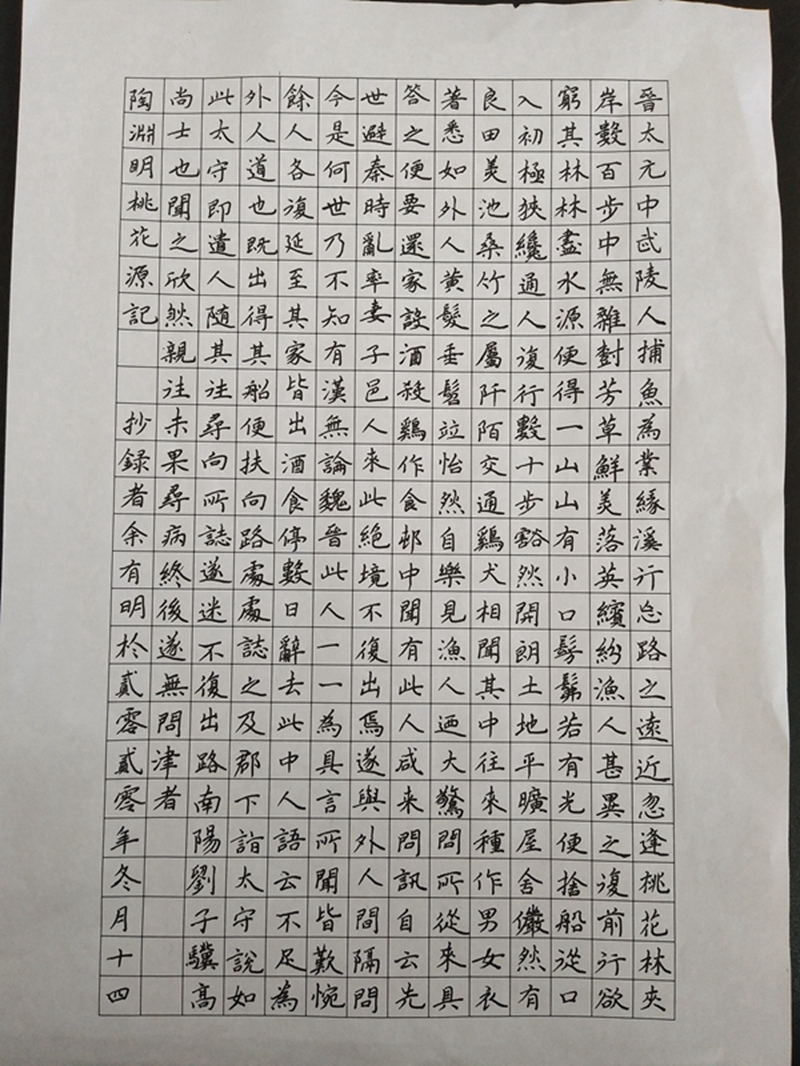 晉太元中武陵人捕魚為業緣溪行忘路之遠近忽逢桃花林夾
岸數百步中無雜對芳草鮮美落英繽紛漁人甚異之復前行欲
窮其林林盡水源便得一山山有小口髣髴若有光便捨船從口
入初極狹纔通人復行數十步豁然開朗土地平曠屋舍儼然有
良田美池桑竹之屬阡陌交通鷄犬相聞其中往來種作男女衣
著悉如外人黃髮垂髫竝怡然自樂見漁人迺大驚問所從來具
答之便要還家設酒殺鷄作食邨中聞有此人咸来問訊自云先
世避秦時亂率妻子邑人來此絕境不復出焉遂與外人間隔問
今是何世乃不知有漢無論魏晉此人一一為具言所聞皆歎惋
餘人各復延至其家皆出酒食停數日辭去此中人語云不足為
外人道也既出得其船便扶向路處處誌之及郡下詣太守說如
此太守即遣人隨其往尋向所誌遂迷不復出路南陽劉子驥高
尚士也聞之欣然親往未果尋病終後遂無問津者
陶淵明桃花源記 抄錄者余有明於貳零貳零年冬月十四